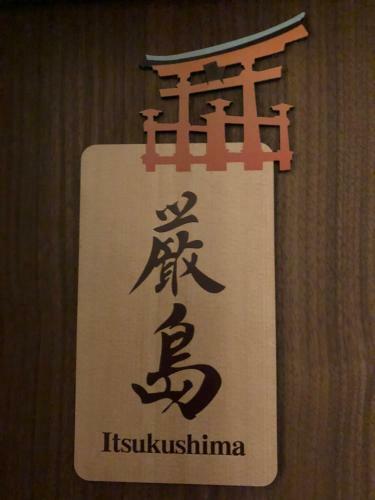 厳島
Itsukushima